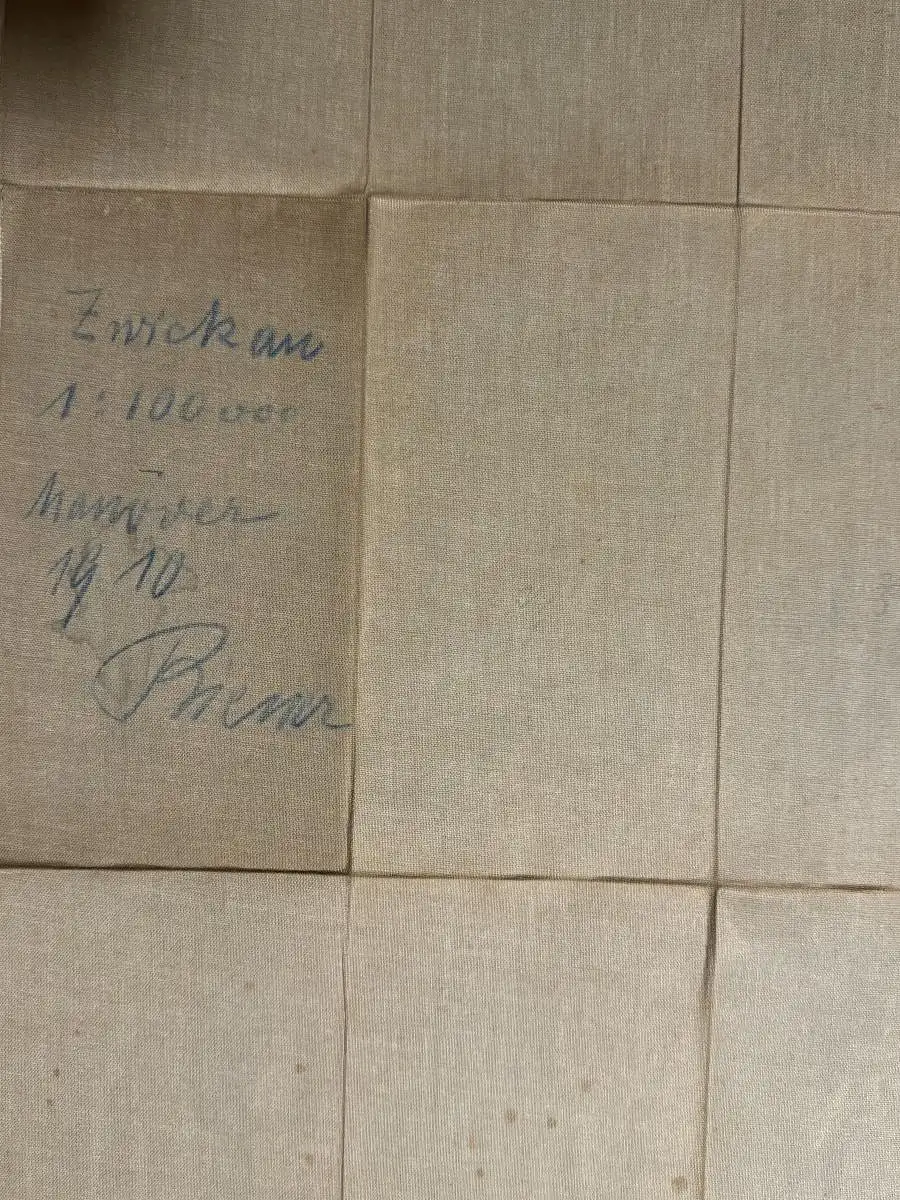 Zwickau
1:100000
Manöver
1910